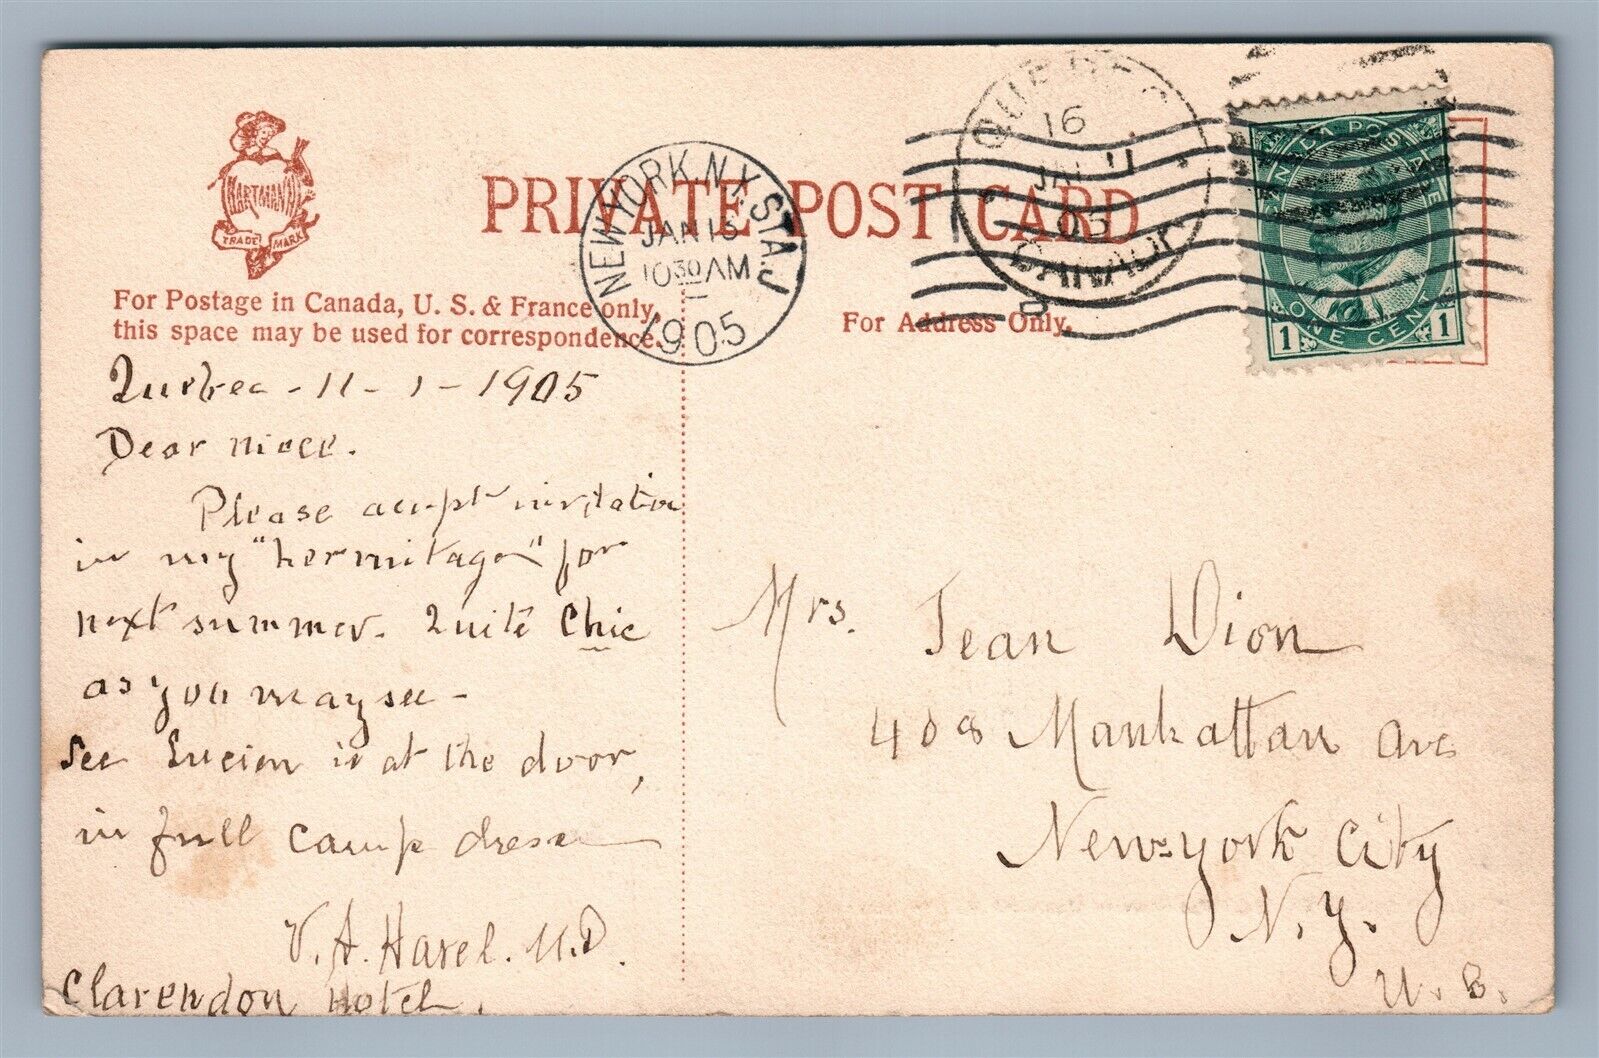 HARTMANN
TRADE MARK
PRIVATE POST CARD
For Postage in Canada, U. S. & France only,
this space may be used for correspondence.
For Address Only.
NEW YORK, N.Y. STA. J
JAN 13
10 30 AM
1905
QUEBEC
16
JAN 11
05
CANADA
CANADA POSTAGE
ONE CENT
1 1
Quebec - 11 - 1 - 1905
Dear niece.
Please accept invitation
in my "hermitage" for
next summer. Quite Chic
as you may see -
See Lucien is at the door,
in full camp dress
V. A. Harel. M.D.
Clarendon Hotel.
Mrs. Jean Dion
408 Manhattan Ave
New-york City
N. y.
U. S.